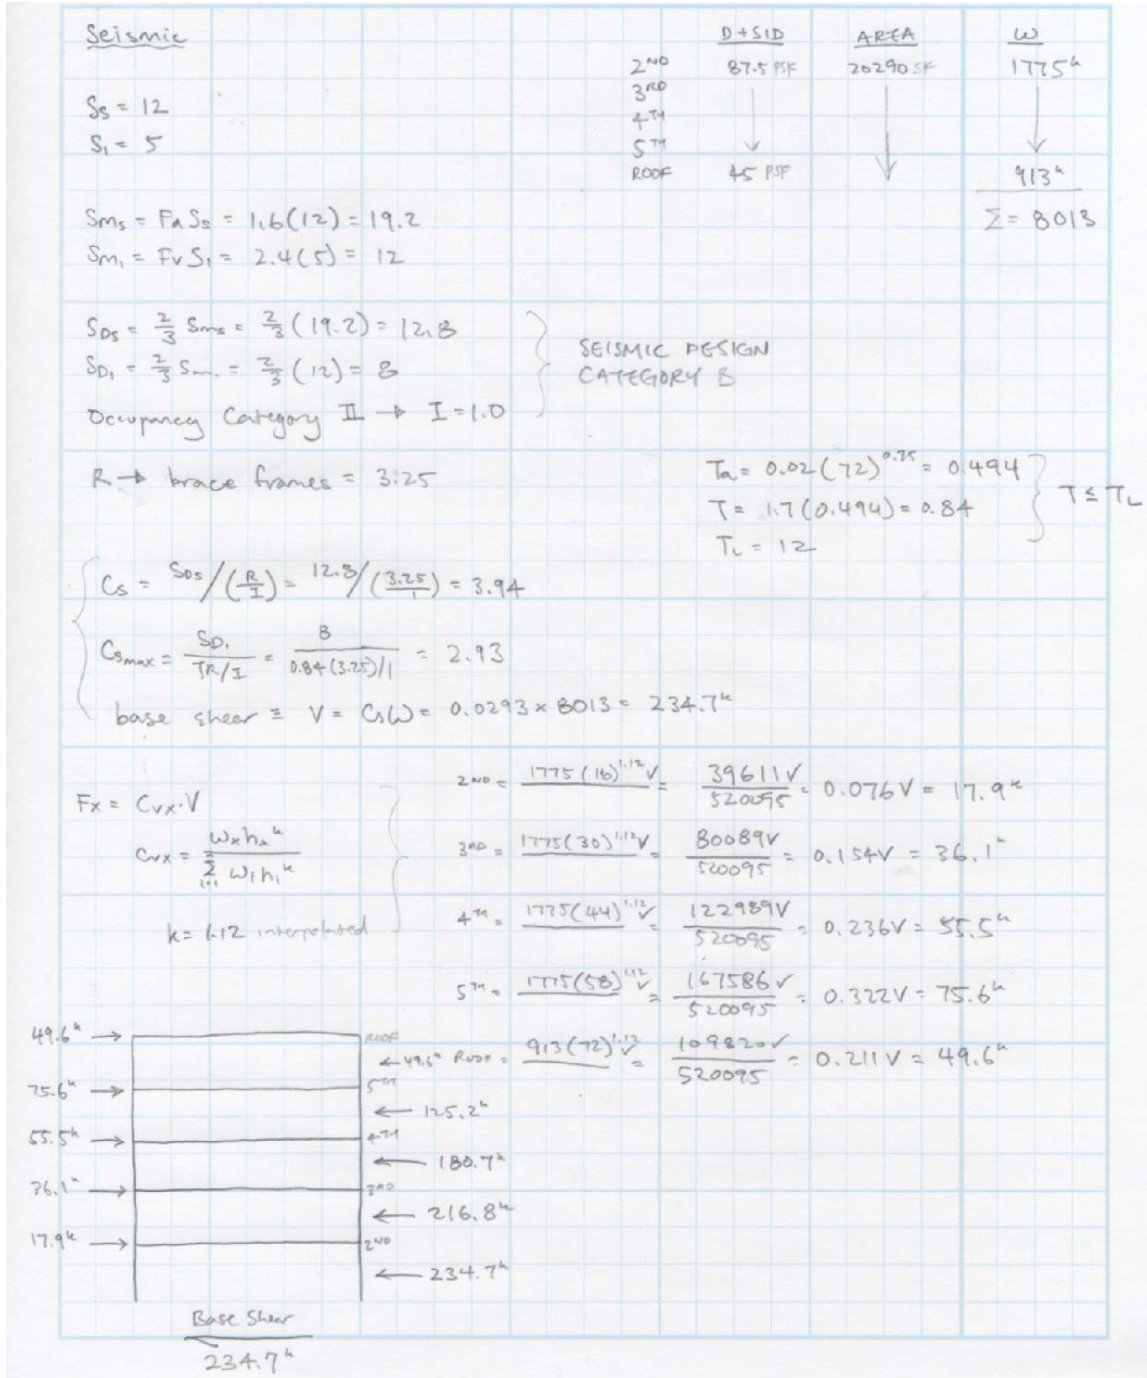 Seismic
D+SID AREA W
2ND 87.5 PSF 20290 SF 1775k
3RD
4TH
5TH
ROOF 45 PSF 913k
Σ = 8013
Ss = 12
S1 = 5
Sms = Fa Ss = 1.6(12) = 19.2
Sm1 = Fv S1 = 2.4(5) = 12
SDS = 2/3 Sms = 2/3 (19.2) = 12.8
SD1 = 2/3 Sm1 = 2/3 (12) = 8
Occupancy Category II → I = 1.0
SEISMIC DESIGN
CATEGORY B
R → brace frames = 3.25
Ta = 0.02(72)^0.75 = 0.494
T = 1.7(0.494) = 0.84
TL = 12
T ≤ TL
Cs = SDS/(R/I) = 12.8/(3.25/1) = 3.94
Csmax = SD1/(TR/I) = 8/(0.84(3.25)/1) = 2.93
base shear ≡ V = CsW = 0.0293 × 8013 = 234.7k
Fx = Cvx·V
Cvx = wx hx^k / Σ(i=1 to n) wi hi^k
k = 1.12 interpolated
2ND = 1775(16)^1.12 V = 39611V/520095 = 0.076V = 17.9k
3RD = 1775(30)^1.12 V = 80089V/520095 = 0.154V = 36.1k
4TH = 1775(44)^1.12 V = 122989V/520095 = 0.236V = 55.5k
5TH = 1775(58)^1.12 V = 167586V/520095 = 0.322V = 75.6k
ROOF = 913(72)^1.12 V = 109820V/520095 = 0.211V = 49.6k
49.6k → ROOF
← 49.6k
75.6k → 5TH
← 125.2k
55.5k → 4TH
← 180.7k
36.1k → 3RD
← 216.8k
17.9k → 2ND
← 234.7k
Base Shear
234.7k